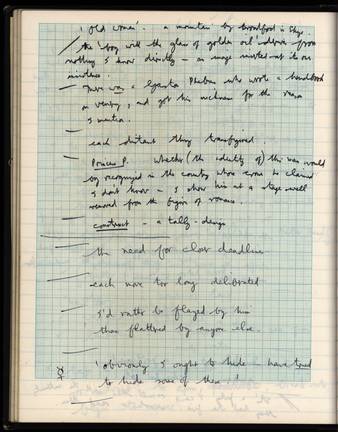 'Old Woman'. a mountain by Broadford in Skye.
the 'boy with the glass of golden oil' derives from
nothing I know directly – an image invented out its own
There was a Gaston Phebus who wrote a handbook
on venery, and got his nickname for the reason
I mention.
each distant thing transfigured
Prince P. whether (the identity of) this man would
be recognised in the country whose crown he claimed
I don't know – I show him at a stage well
removed from the of romance.
construct – a tally-
the need for closer deadline
each move too long deliberated
I'd rather be flayed by him
than flattered by anyone else.
'obviously I ought to hide – have tried
to hide some of these'